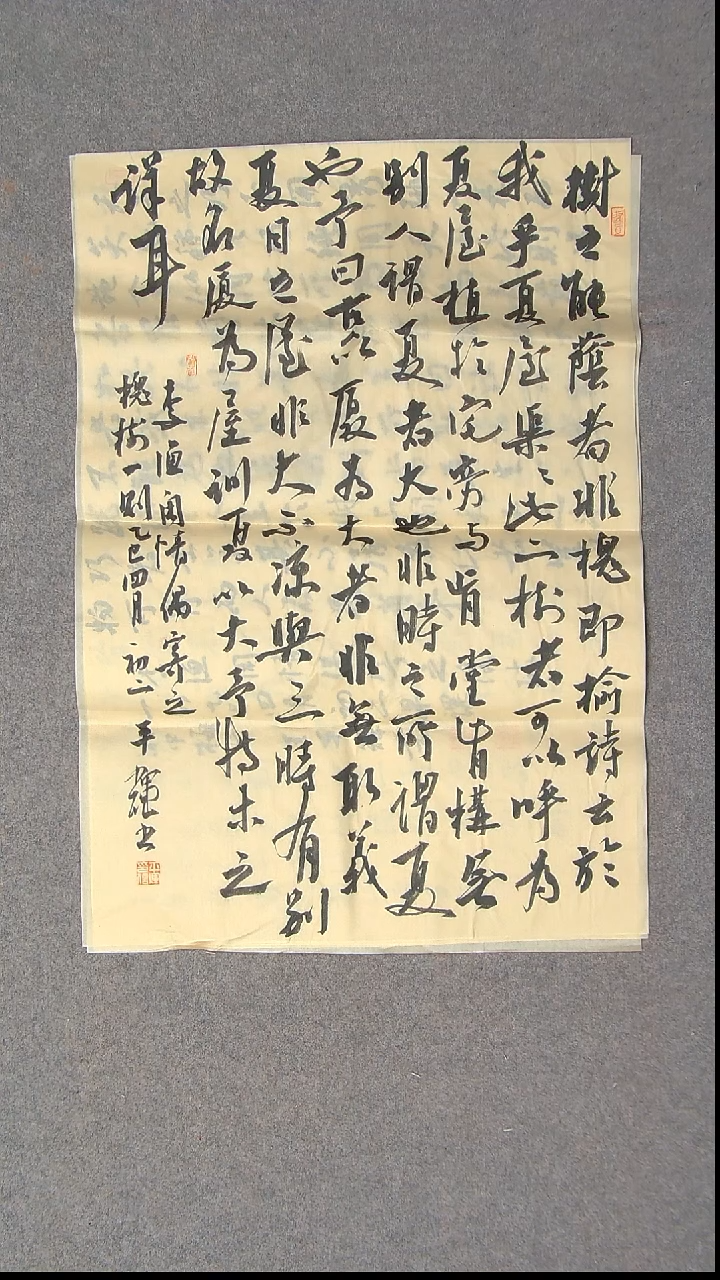 樹之能蔭者非槐即榆詩云於
我乎夏屋渠〻此二樹者可以呼為
夏屋植於宅旁与肯堂肯構無
別人謂夏者大也非時之所謂夏
也予曰古以厦為大者非無取義
夏日之屋非大不涼與三時有別
故名厦為屋訓夏以大予特未之
詳耳
李漁閒情偶寄之
槐樹一則乙巳四月初二平